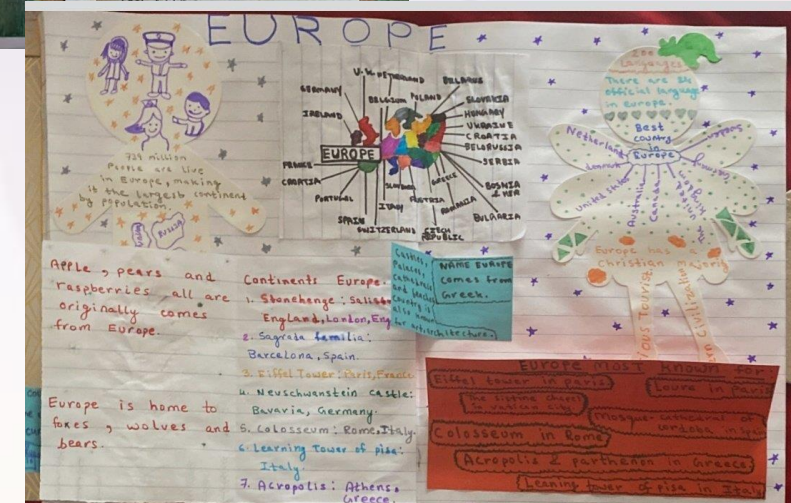 EUROPE
729 million
People are live
in Europe, making
it the largest continent
by population.
RUSSIA
GERMANY
IRELAND
U.K.
NETHERLAND
BELGIUM
POLAND
BELARUS
SLOVAKIA
HUNGARY
UKRAINE
CROATIA
BELORUSSIA
SERBIA
BOSNIA
& HER
BULGARIA
EUROPE
FRANCE
CROATIA
PORTUGAL
SPAIN
SWITZERLAND
ITALY
AUSTRIA
CZECH
REPUBLIC
GREECE
ROMANIA
200
Languages
There are 24
official language
in europe.
Best
country
in
Europe
Netherland
Denmark
United States
Australia
Canada
The United
Kingdom
Germany
Sweden
Europe has a
christian majority
Apple, pears and
raspberries all are
originally comes
from Europe.
Europe is home to
foxes, wolves and
bears.
Continents Europe.
1. Stonehenge:
England, London, Eng
2. Sagrada familia:
Barcelona, Spain.
3. Eiffel Tower: Paris, France
4. Neuschwanstein castle:
Bavaria, Germany.
5. Colosseum: Rome, Italy.
6. Learning Tower of pisa:
Italy.
7. Acropolis: Athens,
Greece.
Castles,
Palaces,
cathedrals
and
country is
also known
for art, architecture.
NAME EUROPE
comes from
Greek.
Europe most known for
Eiffel tower in paris
Louro in paris
The sistine chapel
in vatican city
mosque-cathedral of
cordoba in spain
Colosseum in Rome
Acropolis & parthenon in Greece
Leaning tower of pise in Italy